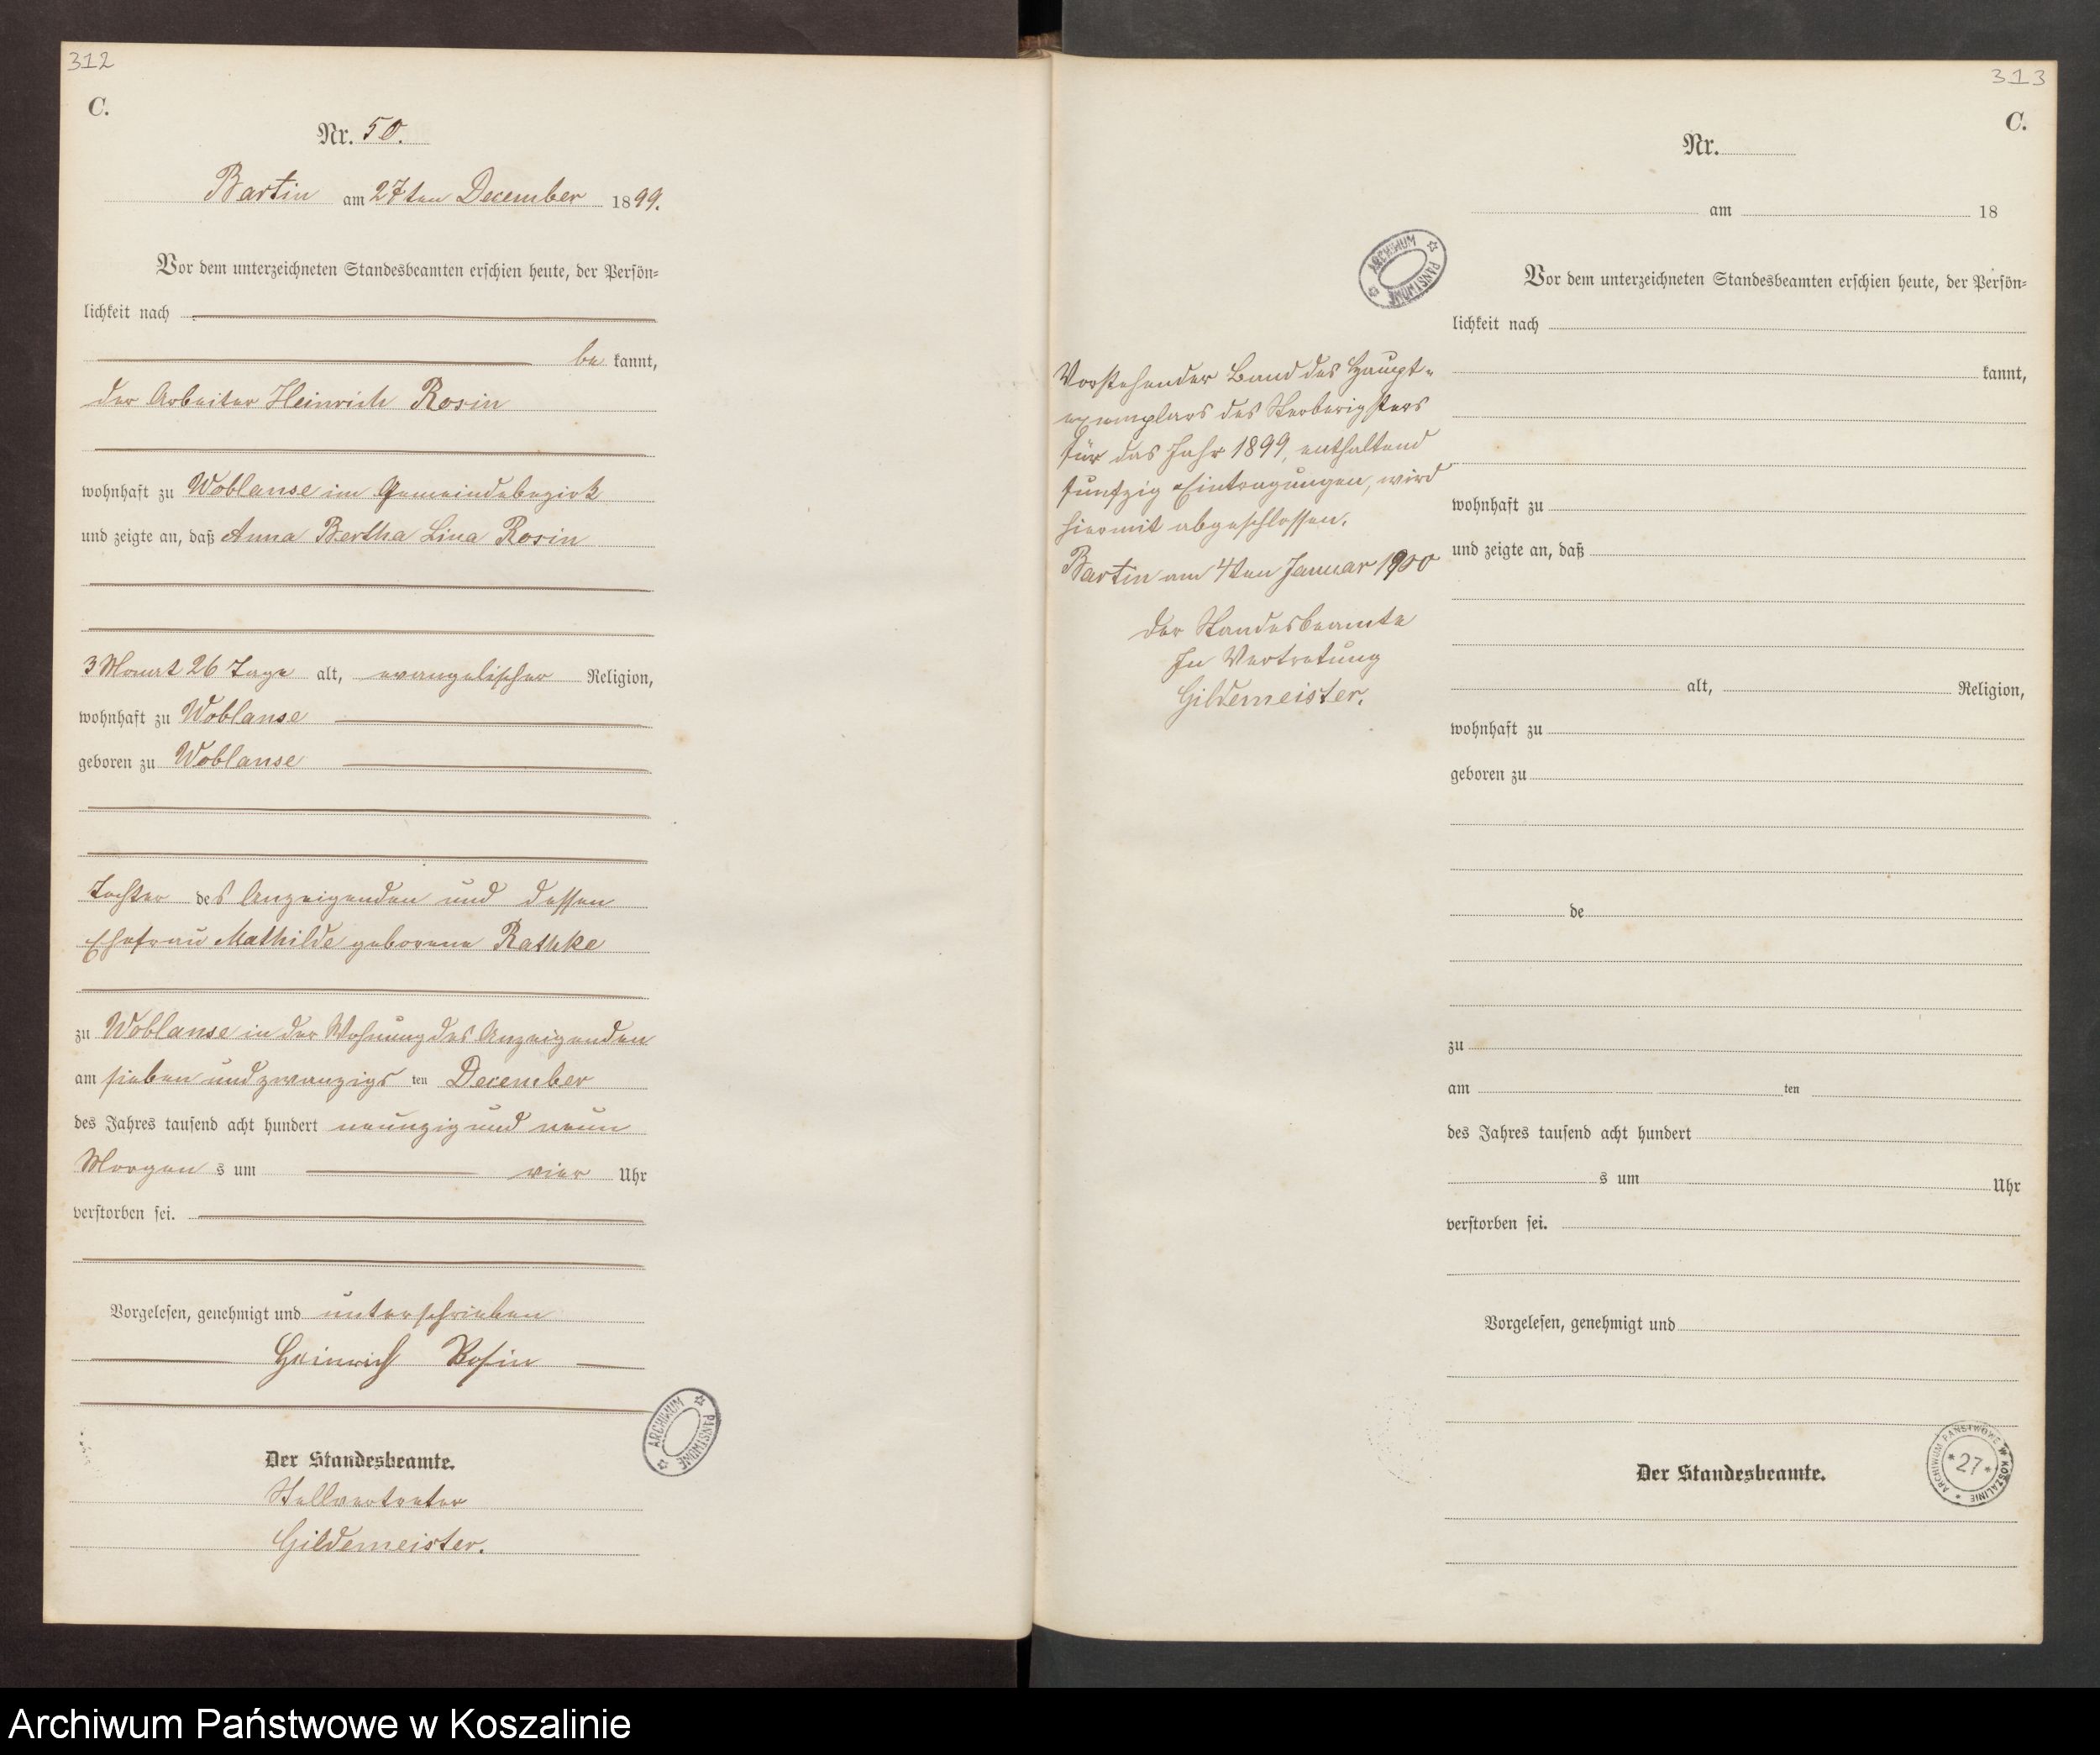 312
C.
Nr. 50.
Bartin am 27ten December 1899.
Vor dem unterzeichneten Standesbeamten erschien heute, der Persön-
lichkeit nach
be kannt,
der Arbeiter Heinrich Rosin
wohnhaft zu Woblanse im Gemeindebezirk
und zeigte an, daß Anna Bertha Lina Rosin
3 Monat 26 Tage alt, evangelischer Religion,
wohnhaft zu Woblanse
geboren zu Woblanse
Tochter des Anzeigenden und dessen
Ehefrau Mathilde geborene Rathke
zu Woblanse in der Wohnung des Anzeigenden
am sieben und zwanzigs ten December
des Jahres tausend acht hundert neunzig und neun
Morgen s um vier Uhr
verstorben sei.
Vorgelesen, genehmigt und unterschrieben
Heinrich Rosin
ARCHIWUM PAŃSTWOWE
Der Standesbeamte.
Stellvertreter
Gildemeister.
313
C.
Nr.
am 18
ARCHIWUM PAŃSTWOWE
Vor dem unterzeichneten Standesbeamten erschien heute, der Persön-
lichkeit nach
kannt,
wohnhaft zu
und zeigte an, daß
alt, Religion,
wohnhaft zu
geboren zu
de
zu
am ten
des Jahres tausend acht hundert
s um Uhr
verstorben sei.
Vorgelesen, genehmigt und
Der Standesbeamte.
ARCHIWUM PAŃSTWOWE W KOSZALINIE
* 27 *
Vorstehender Band des Haupt-
exemplars des Sterberegisters
für das Jahr 1899, enthaltend
funfzig Eintragungen, wird
hiermit abgeschlossen.
Bartin am 4ten Januar 1900
Der Standesbeamte
In Vertretung
Gildemeister.
Archiwum Państwowe w Koszalinie